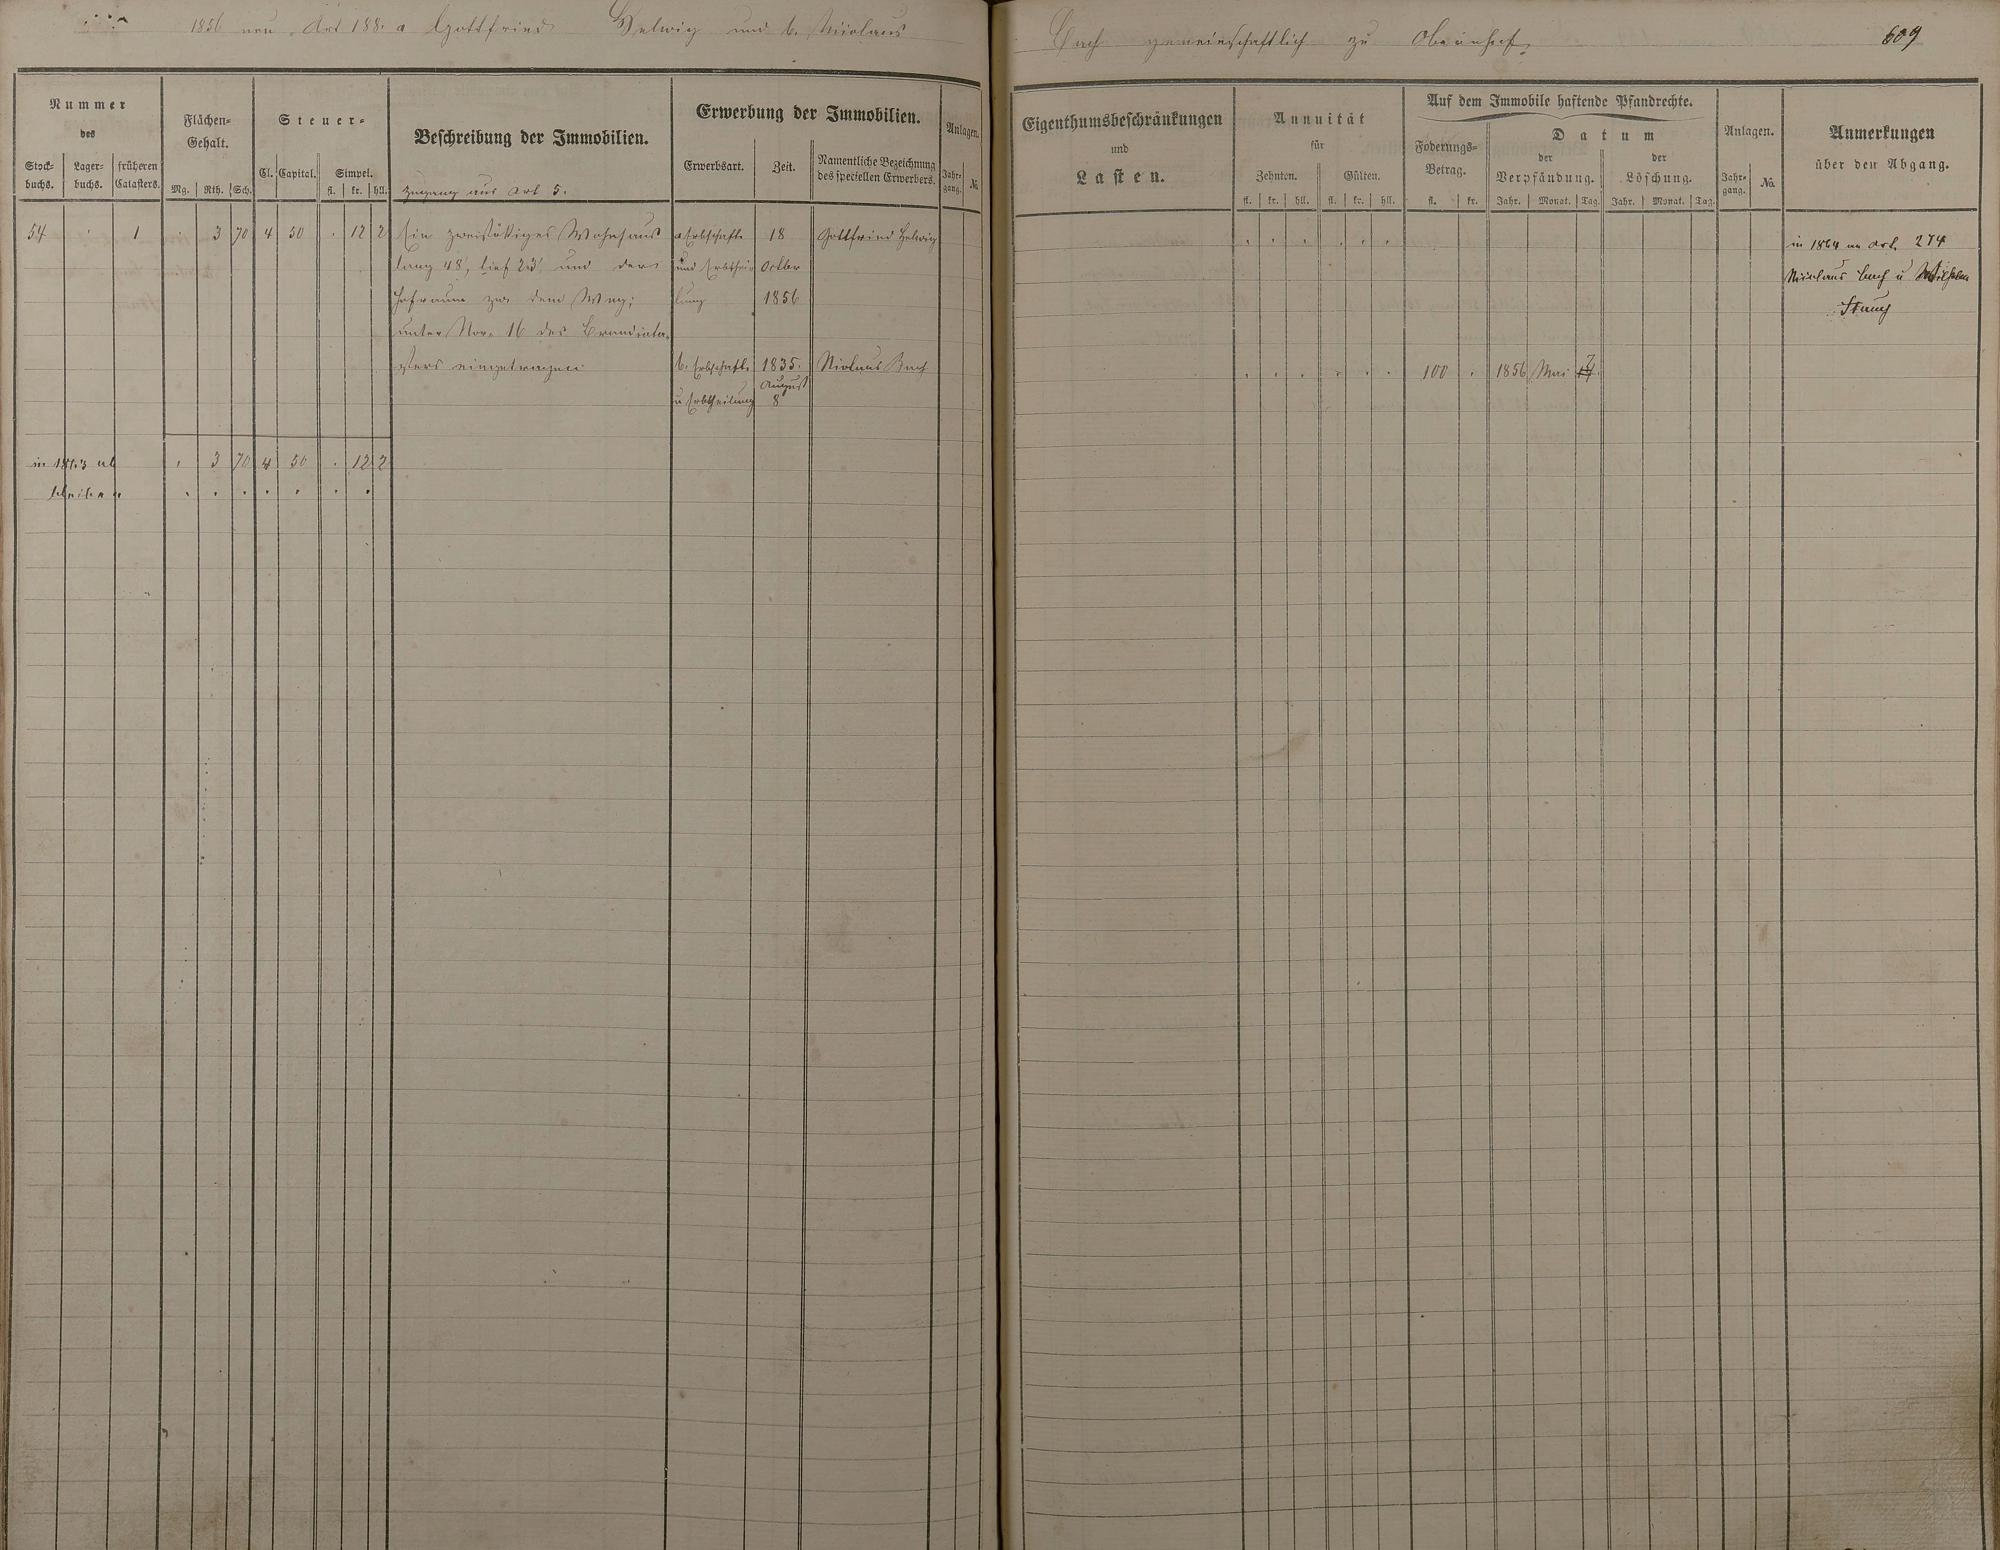 1856 neu. Art 188. a Gottfried Helwig und b. Nicolaus
Bach gemeinschaftlich zu Obernhof.
609
Nummer
des
Stock-
buchs.
Lager-
buchs.
früheren
Catasters.
Flächen-
Gehalt.
Mg. Rth. Sch.
Steuer-
Cl. Capital.
Simpel.
fl. kr. hll.
Beschreibung der Immobilien.
Zugang aus Art 5.
Erwerbung der Immobilien.
Erwerbsart.
Zeit.
Namentliche Bezeichnung
des speciellen Erwerbers.
Anlagen.
Jahr-
gang.
№
Eigenthumsbeschränkungen
und
Lasten.
Annuität
für
Zehnten.
fl. kr. hll.
Gülten.
fl. kr. hll.
Auf dem Immobile haftende Pfandrechte.
Foderungs-
Betrag.
fl. kr.
Datum
der
Verpfändung.
Jahr. Monat. Tag.
der
Löschung.
Jahr. Monat. Tag.
Anlagen.
Jahr-
gang.
No.
Anmerkungen
über den Abgang.
54 1 3 70 4 50 12 2 Ein zweistöckiges Wohnhaus a Erbschaft 18 Gottfried Helwig
lang 48', tief 23' und der und Erbthei- Octbr
Hofraum zw. dem Weg; lung 1856
unter Nro. 16 des Brandcata-
sters eingetragen b. Erbschaft 1835. Nicolaus Bach
August
u Erbtheilung 8
100 1856 Mai 7
in 1864 an Art. 274
Nicolaus Bach u Wilhelm
in 1863 ab 3 70 4 50 12 2
bleiben